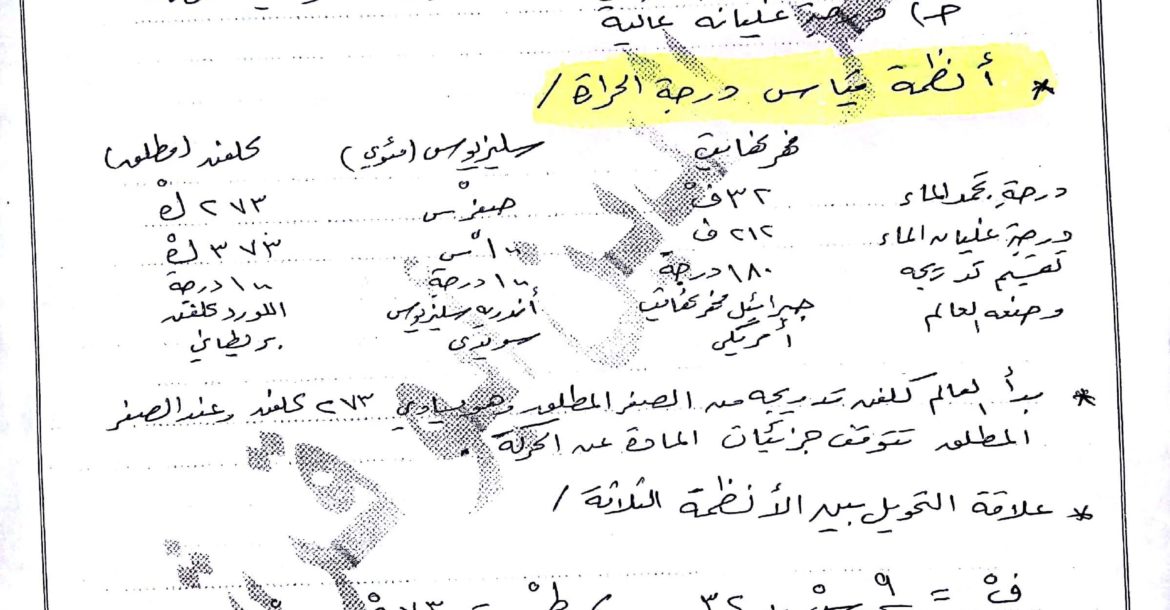 حـ) درجة غليانه عالية
* أنظمة قياس درجة الحراة /
فهرنهايت سليزيوس (مئوي) كلفن (مطلق)
درجة تجمد الماء ٣٢ ف° صفر س° ٢٧٣ ك°
درجة غليان الماء ٢١٢ ف ١٠٠ س° ٣٧٣ ك°
تقسيم تدريجه ١٨٠ درجة ١٠٠ درجة ١٠٠ درجة
وضعه العالم جبرائيل فهرنهايت أندريه سليزيوس اللورد كلفن
أمريكي سويدي بريطاني
* بدأ العالم كلفن تدريجه من الصفر المطلق وهو يساوي ٢٧٣ كلفن وعند الصفر
المطلق تتوقف جزئيات المادة عن الحركة .
* علاقة التحويل بين الأنظمة الثلاثة /
ف° = ٩ س° ٣٢